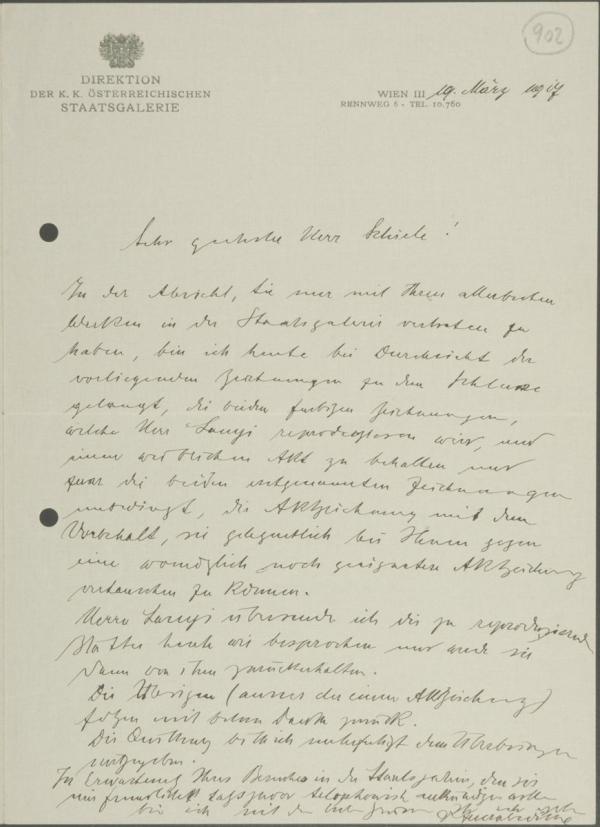 902
DIREKTION
DER K. K. ÖSTERREICHISCHEN
STAATSGALERIE
WIEN III 19. März 1917
RENNWEG 6 - TEL. 10.760
Sehr geehrter Herr Schiele!
In der Absicht, Sie nur mit Ihren allerbesten
Werken in der Staatsgalerie vertreten zu
haben, bin ich heute bei Durchsicht der
vorliegenden Zeichnungen zu dem Schlusse
gelangt, die beiden farbigen Zeichnungen,
welche Herr Lanyi reproduzieren wird, und
einen weiblichen Akt zu behalten und
zwar die beiden erstgenannten Zeichnungen
unbedingt, die Aktzeichnung mit dem
Vorbehalt, sie gelegentlich bei Ihnen gegen
eine womöglich noch geeignetere Aktzeichnung
vertauschen zu können.
Herrn Lanyi übersende ich die zu reproduzierenden
Blätter heute wie besprochen und werde sie
dann von ihm zurückerhalten.
Die Übrigen (ausser der einen Aktzeichnung)
folgen mit bestem Danke zurück.
Die Quittung bitte ich unterfertigt dem Überbringer
mitzugeben.
In Erwartung Ihres Besuches in der Staatsgalerie, den Sie
mir freundlichst tags zuvor telephonisch ankündigen wollen
bin ich mit den besten Grüssen Ihr sehr